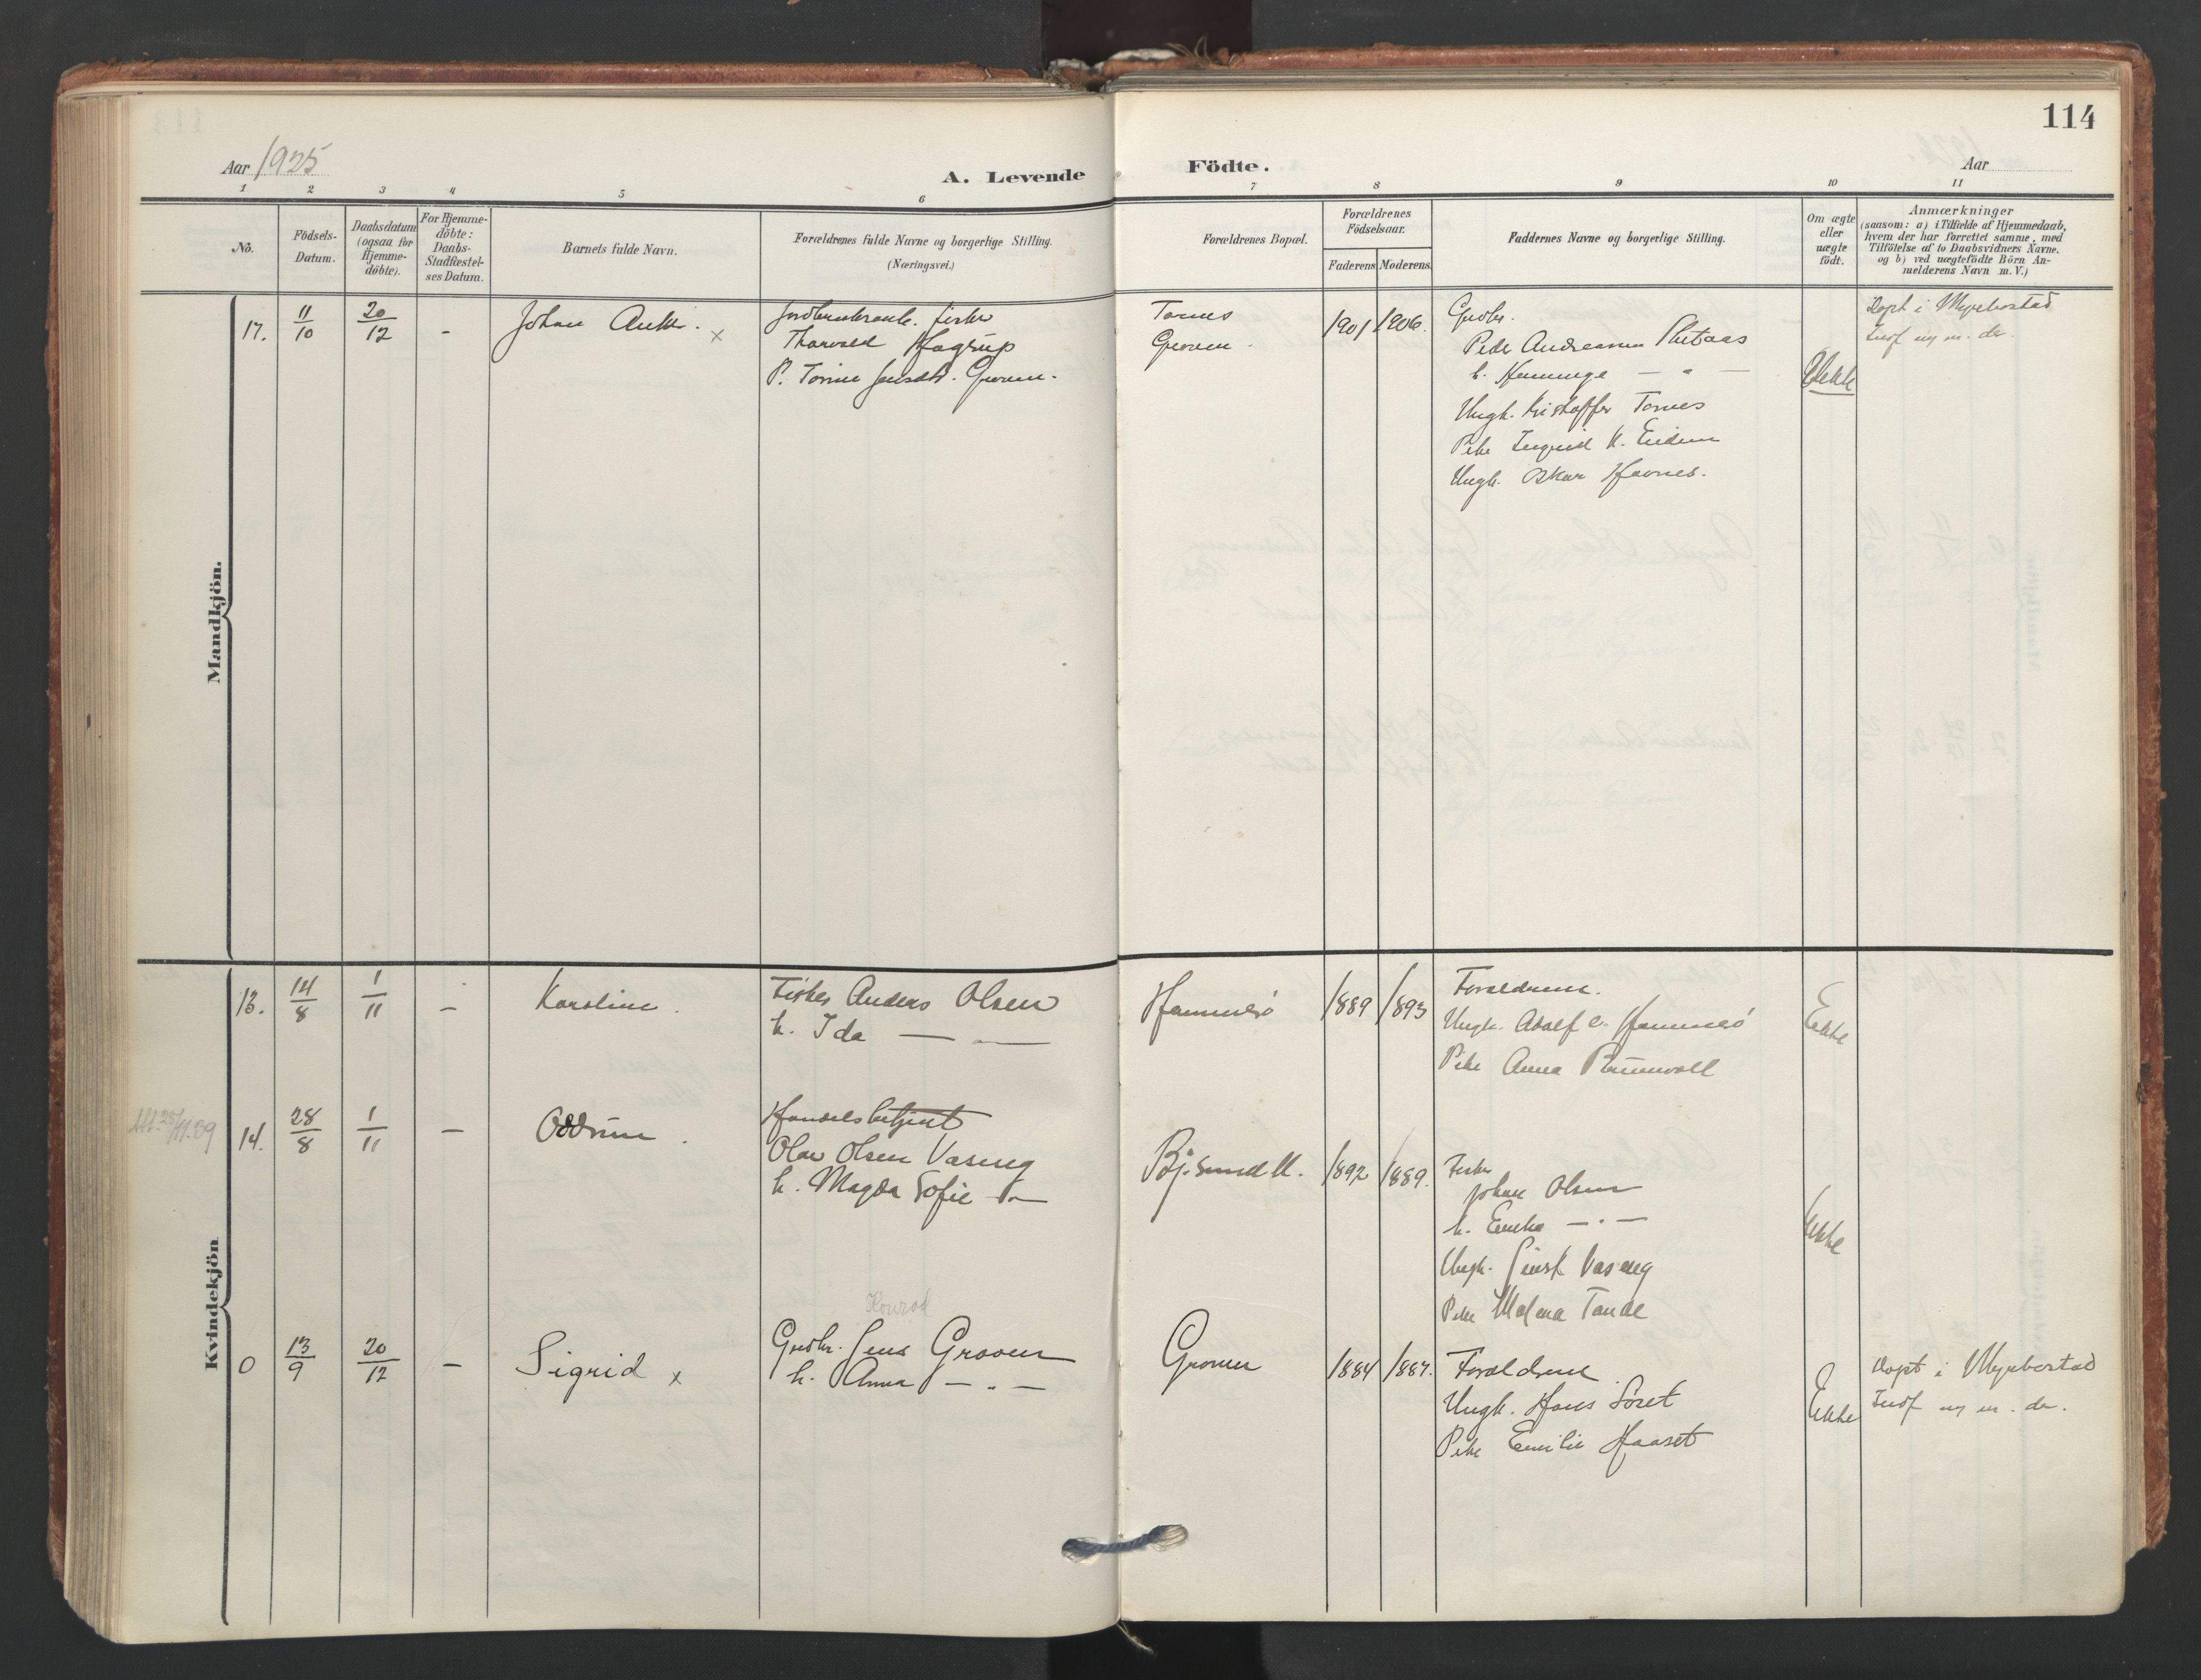 114
Aar 1925
A. Levende Födte.
Aar
1 2 3 4 5 6 7 8 9 10 11
No.
Födsels-
Datum.
Daabsdatum
(ogsaa for
Hjemme-
döbte).
For Hjemme-
döbte:
Daabs-
Stadfæstel-
ses Datum.
Barnets fulde Navn.
Forældrenes fulde Navne og borgerlige Stilling.
(Næringsvei.)
Forældrenes Bopæl.
Forældrenes
Födselsaar.
Faderens Moderens.
Faddernes Navne og borgerlige Stilling.
Om ægte
eller
uægte
födt.
Anmærkninger
(saasom: a) i Tilfælde af Hjemmedaab,
hvem der har forrettet samme, med
Tilföielse af to Daabsvidners Navne.
og b) ved uægtefödte Börn An-
melderens Navn m. V.)
Mandkjön.
17.
11/10
20/12
-
Johan x
fisker
Thorvald Hagrup
P. Jensdtr. Groven.
Tornes
Groven.
1901 1906.
Grdbr.
Peder
h. - " -
Ungk. Kristoffer Tornes
Pike Ingrid K. Eidem
Ungk. Oskar Havnes.
Uekte
Döpt i Myrbostad
m. dr.
Kvindekjön
13.
14/8
1/11
-
Karoline.
Fisker Anders Olsen
h. Ida — " —
Hammesö
1889 1893
Foreldrene.
Ungk. Adolf Hammesö
Pike Anna
Ekte
14.
28/8
1/11
-
Oddrun.
Handelsbetjent
Olav Olsen Vaseng
h. Magda Sofie - " -
Bj.sund
1892 1889.
Fisker
Johan Olsen
h. - " -
Ungk. Vaseng
Pike Malena Tande
Ekte
0
13/9
20/12
-
Sigrid x
Konrad
Grdbr. Jens Groven
h. Anna - " -
Groven
1884 1887.
Foreldrene
Ungk. Hans Söret
Pike Emilie Haaset
Ekte
Döpt i Myrbostad
m. dr.